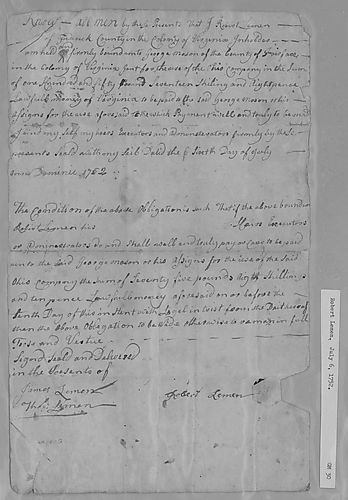 Know all men by these Presents that I Robert Lemen
of County in the Colony of Virginia
am held & firmly bound unto George Mason of the County of Fairfax
in the Colony of Virginia for the use of the Ohio Company in the Sum
of one Hundred and fifty Pound Seventeen Shilling and Eight pence
Lawfull money of Virginia to be paid to the said George Mason or his
assigns for the use aforesaid to the which Payment well and truly to be made
I bind my Self my heirs Executors and Administrators firmly by these
presents Seald with my Seal Dated the 6 Sixth Day of July
Anno Domini 1752
The Condition of the above Obligation is Such That if the above bound
Robert Lemen his Heirs Executors
or Administrators do and Shall well and truly pay or Cause to be paid
unto the Said George Mason or his Assigns for the use of the Said
Ohio Company the Sum of Seventy five pounds Eight Shillings
and ten pence Lawfull money aforesaid on or before the
tenth Day of this Instent with Legel from the Date hereof
then the above Obligation to be Void otherwise to remain in full
Force and Vertue
Signed Seald and Delivered
in the Presents of
James Lemen
Thos Lemen
Robert Lemen
Robert Lemen, July 6, 1752.
GM 30